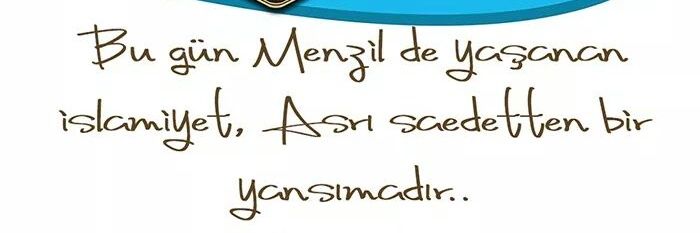 Bu gün Menzil de yaşanan
islamiyet, Asrı saedetten bir
yansımadır..